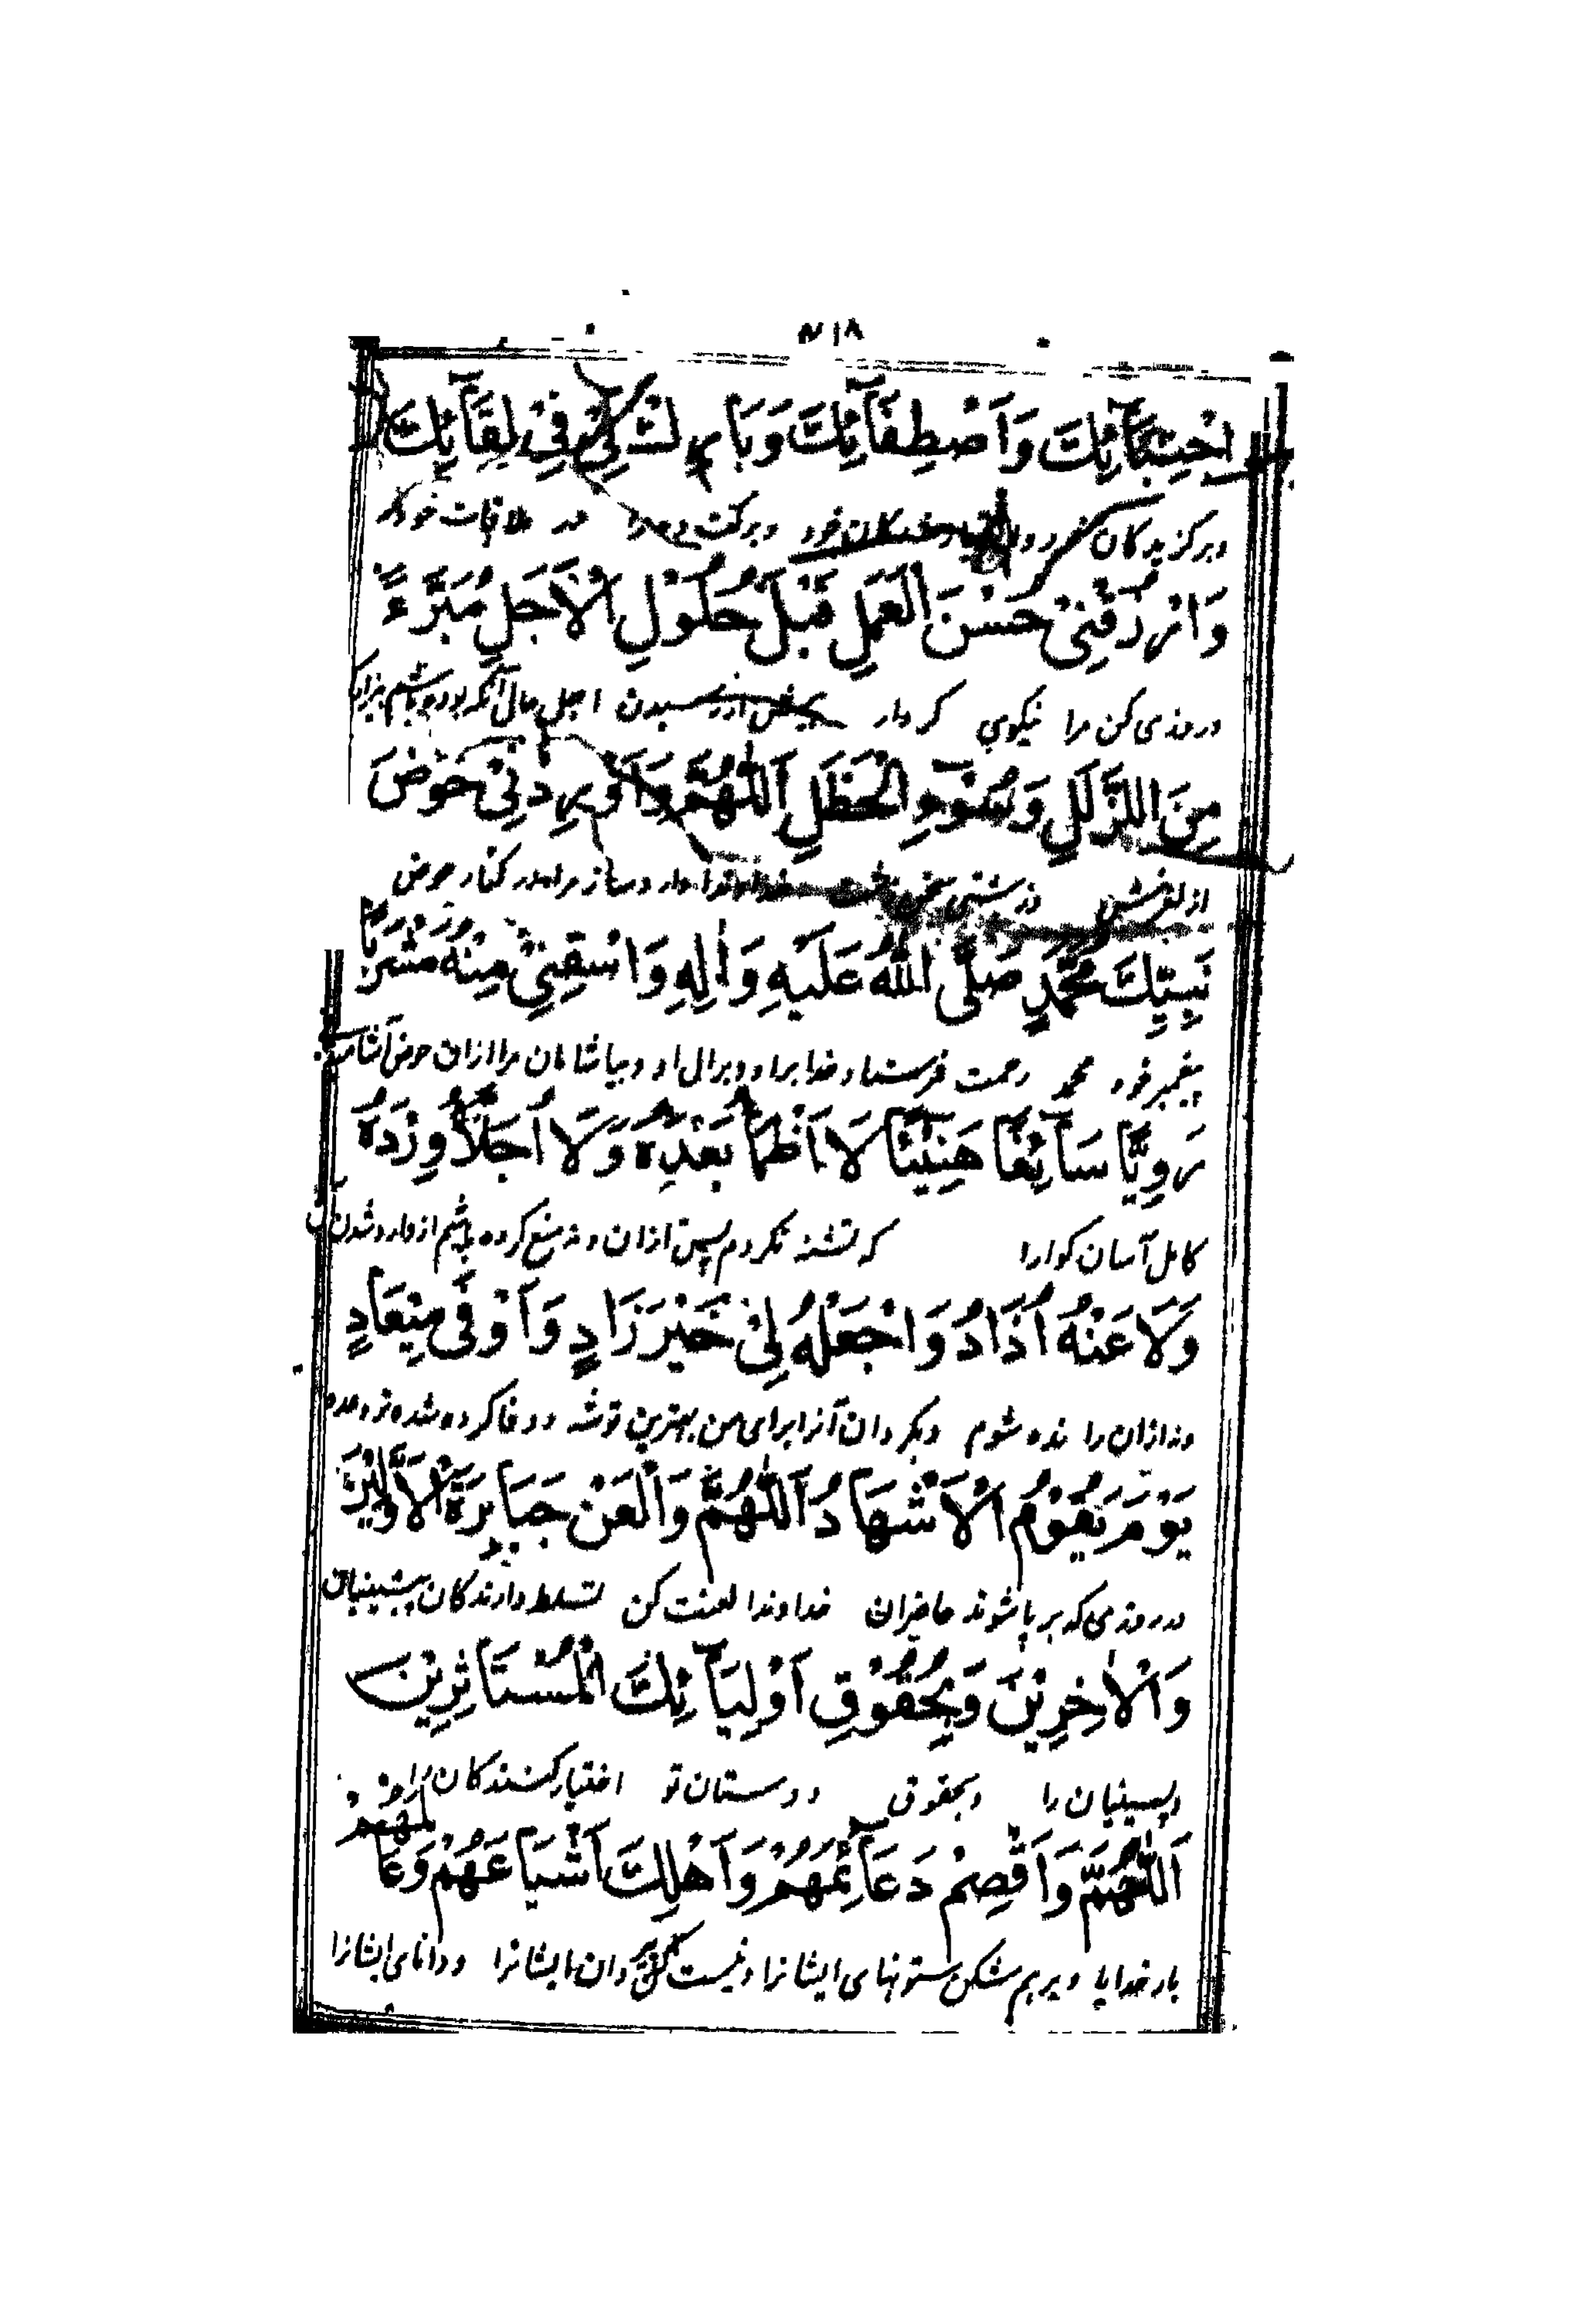 ۴۱۸
اِجْتِبَآئِكَ وَاَصْطِفَآئِكَ وَبَارِكْ لِیْ فِیْ لِقَآئِكَ
وبرگزیدگان خود وبرکت مرا در ملاقات خود
وَارْزُقْنِیْ حُسْنَ الْعَمَلِ قَبْلَ حُلُوْلِ الْاَجَلِ مُبَرَّءً
وروزی کن مرا نیکوی کردار پیش از رسیدن اجل حال آنکه بوده باشم بیزار
مِنَ الزَّلَلِ وَسُوْءِ الْخَطَلِ اَللّٰهُمَّ وَاَوْرِدْنِیْ حَوْضَ
از لغزش وزشتی سخن خداوندا وارد ساز مرا بر کنار حوض
نَبِیِّكَ مُحَمَّدٍ صَلَّی اللّٰهُ عَلَیْهِ وَاٰلِهِ وَاسْقِنِیْ مِنْهُ مَشْرَبًا
پیغمبر خود محمد رحمت فرستاد خدا براو وبرال او وبیاشامان مرا ازان حوض
رَوِیًّا سَآئِغًا هَنِیْئًا لَا اَظْمَأُ بَعْدَهٗ وَلَا اُحَلَّأُ وِرْدَهٗ
کامل آسان گوارا که تشنه نگردم پس ازان ونه منع کرده باشم از وارد شدن آن
وَلَا عَنْهُ اُذَادُ وَاجْعَلْهُ لِیْ خَیْرَ زَادٍ وَاَوْفٰی مِیْعَادٍ
ونه ازان رانده شوم وبگردان آنرا برای من بهترین توشه ووفا کرده شده تر وعده
یَوْمَ یَقُوْمُ الْاَشْهَادُ اَللّٰهُمَّ وَالْعَنْ جَبَابِرَةَ الْاَوَّلِیْنَ
در روزی که برپا شوند حاضران خداوندا لعنت کن تسلط دارندگان پیشینیان
وَالْاٰخِرِیْنَ وَبِحُقُوْقِ اَوْلِیَآئِكَ الْمُسْتَاثِرِیْنَ
وپسینیان را وبحقوق دوستان تو اختیار کنندگان را
اَللّٰهُمَّ وَاقْصِمْ دَعَآئِمَهُمْ وَاَهْلِكْ اَشْیَاعَهُمْ وَعَامِلَهُمْ
بار خدایا وبرهم شکن ستونهای ایشانرا ونیست گردان ایشانرا ودانای ایشانرا